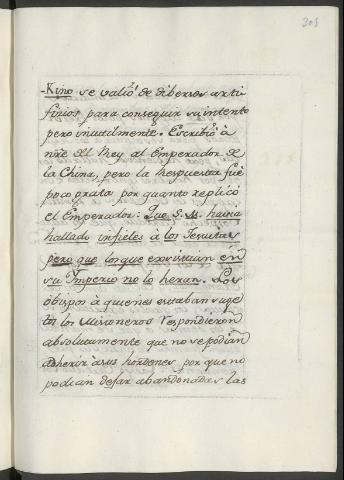 301
-Kyno se valió de dibersos arti-
ficios para conseguir su intento
pero inutilmente. Escribió à
nre del Rey al Emperador de
la China, pero la Respuesta fué
poco grata por quanto replicó
el Emperador: Que S. M. havia
hallado infieles à los Jesuitas
pero que los que existian en
su Imperio no lo heran. Los
obispos à quienes estaban suge
tos los Misioneros respondieron
absolutamente que no se podian
adherir à sus hordenes por que no
podian dejar abandonadas las